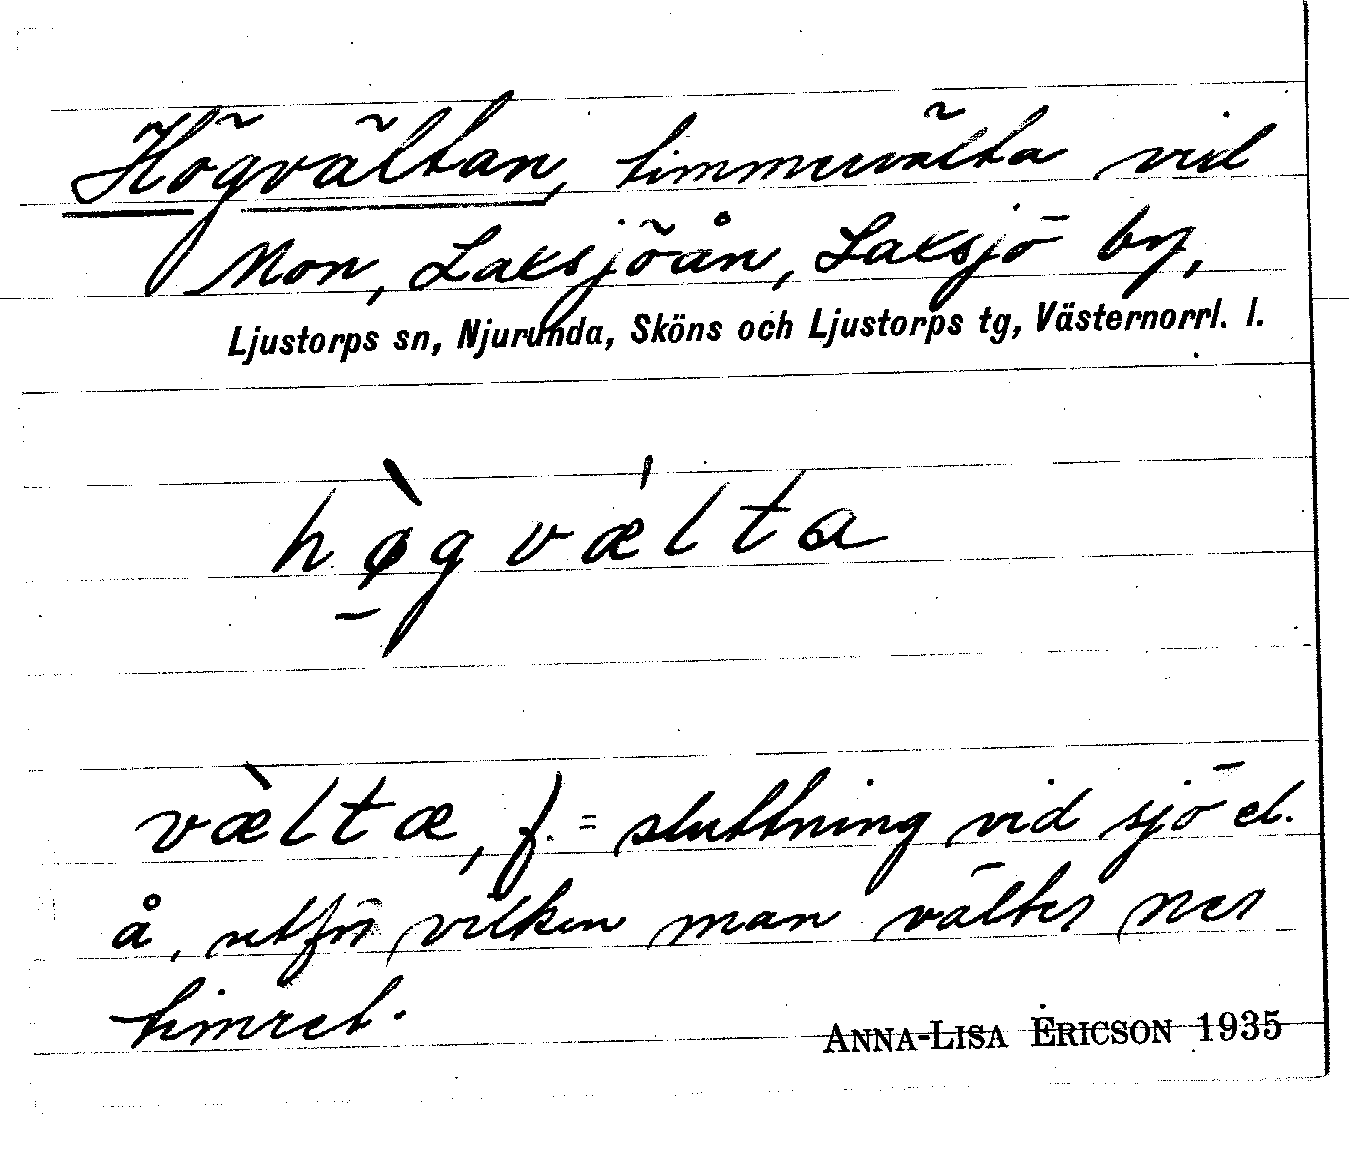 Högvältan, timmervälta vid
Mon, Laxsjöån, Laxsjö by,
Ljustorps sn, Njurunda, Sköns och Ljustorps tg, Västernorrl. l.
hø̀gvæ´lta
væ̀ltæ, f. = sluttning vid sjö el.
å, utför vilken man välter ner
timret.
ANNA-LISA ERICSON 1935